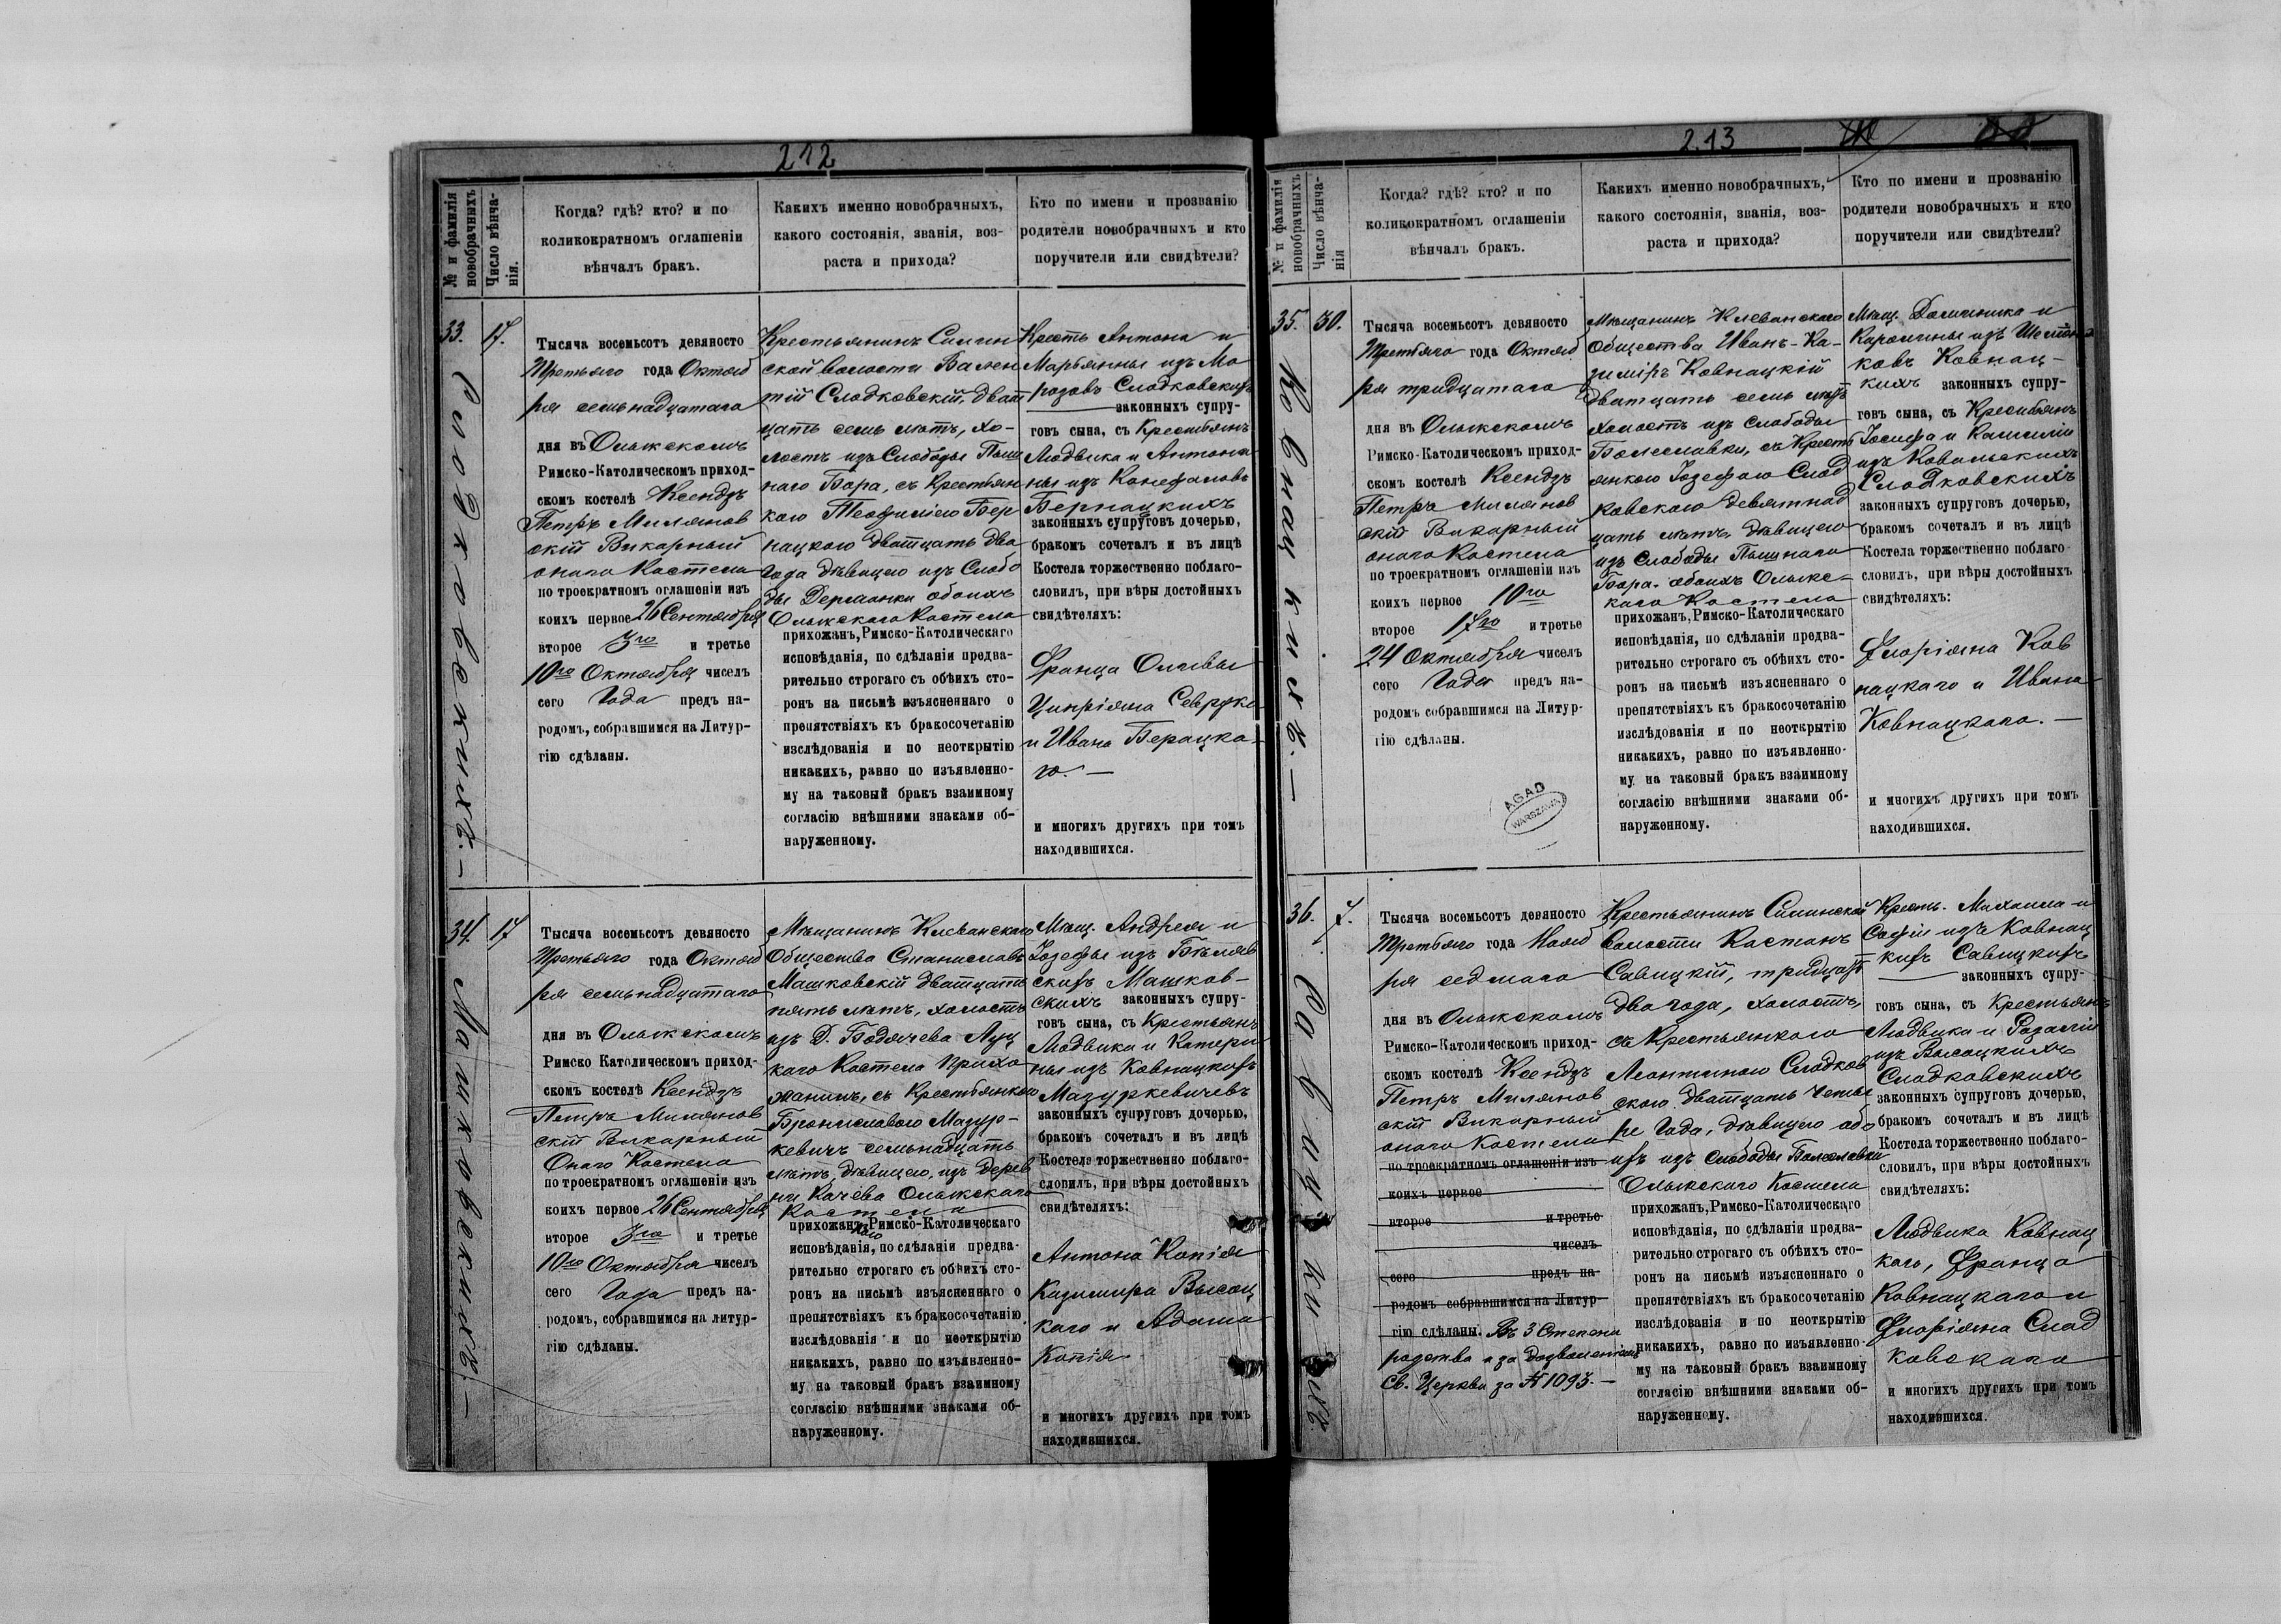 212
№ и фамилія
новобрачныхъ
Число вѣнча-
нія.
Когда? гдѣ? кто? и по
коликократномъ оглашеніи
вѣнчалъ бракъ.
Какихъ именно новобрачныхъ,
какого состоянія, званія, воз-
раста и прихода?
Кто по имени и прозванію
родители новобрачныхъ и кто
поручители или свидѣтели?
33.
Сладковскихъ. —
17.
Тысяча восемьсотъ девяносто
Третьяго года Октяб
ря семьнадцатаго
дня въ Олыкскомъ
Римско-Католическомъ приход-
скомъ костелѣ Ксендзъ
Петръ Милянов
скій Викарный
онаго Костела
по троекратномъ оглашеніи изъ
коихъ первое 26 Сентября
второе 3го и третье
10го Октября чиселъ
сего Года предъ на-
родомъ, собравшимся на Литур-
гію сдѣланы.
Крестьянинъ Силин
ской волости Вален
тій Сладковскій, дват
цать семь лѣтъ, хо-
лостъ изъ Слободы Пыш
наго Бора, съ Крестьян
кою Теофиліею Бер
нацкою дватцать два
года дѣвицею изъ Слобо
ды Дерманки обоихъ
Олыкскаго Костела
прихожанъ, Римско-Католическаго
исповѣданія, по сдѣланіи предва-
рительно строгаго съ обѣихъ сто-
ронъ на письмѣ изъясненнаго о
препятствіяхъ къ бракосочетанію
изслѣдованія и по неоткрытію
никакихъ, равно по изъявленно-
му на таковый бракъ взаимному
согласію внѣшними знаками об-
наруженному.
Крестъ Антона и
Марьянны изъ Мо
розовъ Сладковскихъ
законныхъ супру-
говъ сына, съ Крестьянъ
Людвика и Антони
ны изъ Конефаловъ
Бернацкихъ
законныхъ супруговъ дочерью,
бракомъ сочеталъ и въ лицѣ
Костела торжественно поблаго-
словилъ, при вѣры достойныхъ
свидѣтеляхъ:
Франца Оливы
Ципріяна Севрука
и Ивана Берацка-
го. —
и многихъ другихъ при томъ
находившихся.
34.
Машковскихъ. —
17
Тысяча восемьсотъ девяносто
Третьяго года Октяб
ря семьнадцатаго
дня въ Олыкскомъ
Римско Католическомъ приход-
скомъ костелѣ Ксендзъ
Петръ Милянов
скій Викарный
Онаго Костела
по троекратномъ оглашеніи изъ
коихъ первое 26 Сентября
второе 3го и третье
10го Октября чиселъ
сего Года предъ на-
родомъ, собравшимся на литур-
гію сдѣланы.
Мѣщанинъ Клеванскаго
Общества Станиславъ
Машковскій дватцать
пять лѣтъ, холостъ
изъ Д. Бодячева Луц
каго Костела Прихо
жанинъ, съ Крестьянкою
Брониславою Мазур-
кевичъ семьнадцать
лѣтъ, дѣвицею, изъ дерев
ни Качева Олыкскаго
Костела
прихожанъ, Римско-Католическаго
исповѣданія, по сдѣланіи предва-
рительно строгаго съ обѣихъ сто-
ронъ на письмѣ изъясненнаго о
препятствіяхъ къ бракосочетанію
изслѣдованія и по неоткрытію
никакихъ, равно по изъявленно-
му на таковый бракъ взаимному
согласію внѣшними знаками об-
наруженному.
Мѣщ. Андрея и
Іозефы изъ Бѣляв
скихъ Машков-
скихъ законныхъ супру-
говъ сына, съ Крестьянъ
Людвика и Катери
ны изъ Ковнацкихъ
Мазуркевичевъ
законныхъ супруговъ дочерью,
бракомъ сочеталъ и въ лицѣ
Костела торжественно поблаго-
словилъ, при вѣры достойныхъ
свидѣтеляхъ:
Антона Копія
Казимира Высоц
каго и Адама
Копія.
и многихъ другихъ при томъ
находившихся.
213
№ и фамилія
новобрачныхъ
Число вѣнча-
нія
Когда? гдѣ? кто? и по
коликократномъ оглашеніи
вѣнчалъ бракъ.
Какихъ именно новобрачныхъ,
какого состоянія, званія, воз-
раста и прихода?
Кто по имени и прозванію
родители новобрачныхъ и кто
поручители или свидѣтели?
35.
Ковнацкихъ. —
30.
Тысяча восемьсотъ девяносто
Третьяго года Октяб
ря тридцатаго
дня въ Олыкскомъ
Римско-Католическомъ приход-
скомъ костелѣ Ксендзъ
Петръ Милянов
скій Викарный
онаго Костела
по троекратномъ оглашеніи изъ
коихъ первое 10го
второе 17го и третье
24 Октября чиселъ
сего Года предъ на-
родомъ собравшимся на Литур-
гію сдѣланы.
AGAD
WARSZAWA
Мѣщанинъ Клеванскаго
Общества Иванъ-Ка-
зиміръ Ковнацкій
дватцать семь лѣтъ
холостъ изъ слободы
Болеславки, съ Кресть
янкою Іозефою Слад
ковскою девятнад
цать лѣтъ, дѣвицею
изъ слободы Пышнаго
Бора. обоихъ Олыкс-
каго Костела
прихожанъ, Римско-Католическаго
исповѣданія, по сдѣланіи предва-
рительно строгаго съ обѣихъ сто-
ронъ на письмѣ изъясненнаго о
препятствіяхъ къ бракосочетанію
изслѣдованія и по неоткрытію
никакихъ, равно по изъявленно-
му на таковый бракъ взаимному
согласію внѣшними знаками об-
наруженному.
Мѣщ. Доминика и
Каролины изъ
ковъ Ковнац-
кихъ законныхъ супру-
говъ сына, съ Крестьянъ
Іосифа и Камиліи
изъ Ковальскихъ
Сладковскихъ
законныхъ супруговъ дочерью,
бракомъ сочеталъ и въ лицѣ
Костела торжественно поблаго-
словилъ, при вѣры достойныхъ
свидѣтеляхъ:
Флоріяна Ков
нацкаго и Ивана
Ковнацкаго. —
и многихъ другихъ при томъ
находившихся.
36.
Савицкихъ
7.
Тысяча восемьсотъ девяносто
Третьяго года Нояб
ря седмаго
дня въ Олыкскомъ
Римско-Католическомъ приход-
скомъ костелѣ Ксендзъ
Петръ Милянов
скій Викарный
онаго Костела
по троекратномъ оглашеніи изъ
коихъ первое
второе и третье
чиселъ
сего предъ на
родомъ собравшимся на Литур-
гію сдѣланы. Въ 3 Степени
родства и за дозволеніемъ
Св. Церкви за № 1093. —
Крестьянинъ Силинской
волости Костанъ
Савицкій, тридцать
два года, холостъ,
съ Крестьянкою
Леонтиною Сладков
скою дватцать четы
ре года, дѣвицею обо
ихъ изъ слободы Болеславки
Олыкскаго Костела
прихожанъ, Римско-Католическаго
исповѣданія, по сдѣланіи предва-
рительно строгаго съ обѣихъ сто-
ронъ на письмѣ изъясненнаго о
препятствіяхъ къ бракосочетанію
изслѣдованія и по неоткрытію
никакихъ, равно по изъявленно-
му на таковый бракъ взаимному
согласію внѣшними знаками об-
наруженному.
Кресть. Михаила и
Софіи изъ Ковнац
кихъ Савицкихъ
законныхъ супру-
говъ сына, съ Крестьянъ
Людвика и Розаліи
изъ Высоцкихъ
Сладковскихъ
законныхъ супруговъ дочерью,
бракомъ сочеталъ и въ лицѣ
Костела торжественно поблаго-
словилъ, при вѣры достойныхъ
свидѣтеляхъ:
Людвика Ковнац
каго, Франца
Ковнацкаго и
Флоріяна Слад
ковскаго
и многихъ другихъ при томъ
находившихся.